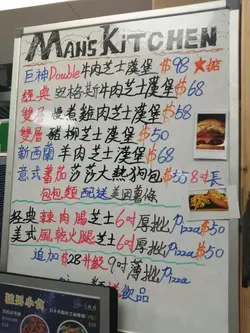 MAN'S KITCHEN
巨神Double牛肉芝士漢堡 $98
經典 安格斯牛肉芝士漢堡 $68
雙層 慢煮雞肉芝士漢堡 $58
雙層 豬柳芝士漢堡 $50
新西蘭 羊肉芝士漢堡 $68
意式番茄莎莎大熱狗包 $55 8寸長
包包類 配送 美國薯條
經典辣肉腸芝士6吋厚批Pizza $50
美式風乾火腿芝士6吋厚批Pizza $50
追加$28升級9吋薄批Pizza
飲品
小食